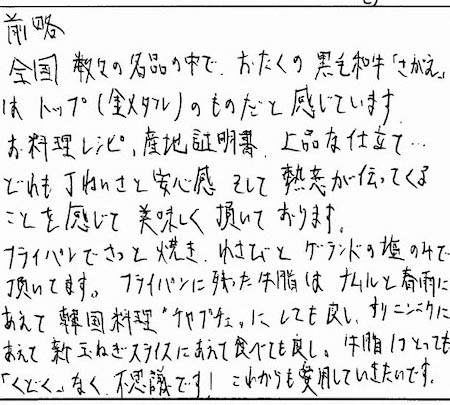 前略
全国 数々の名品の中で、おたくの 黒毛和牛「さかえ」
は トップ(金メタル)のものだと 感じています
お料理レシピ、産地証明書、上品な仕立て…
どれも 丁ねいさと 安心感 そして 熱意が伝ってくる
ことを感じて 美味しく 頂いて おります。
フライパンでさっと 焼き、わさびと ゲランドの塩のみで
頂いてます。 フライパンに残った牛脂は ナムルと春雨に
あえて 韓国料理"チャプチェ"に しても良し、すりニンニクに
あえて 新玉ねぎスライスにあえて食べても良し。 牛脂はとっても
「くどく」なく、不思議です! これからも愛用していきたいです。